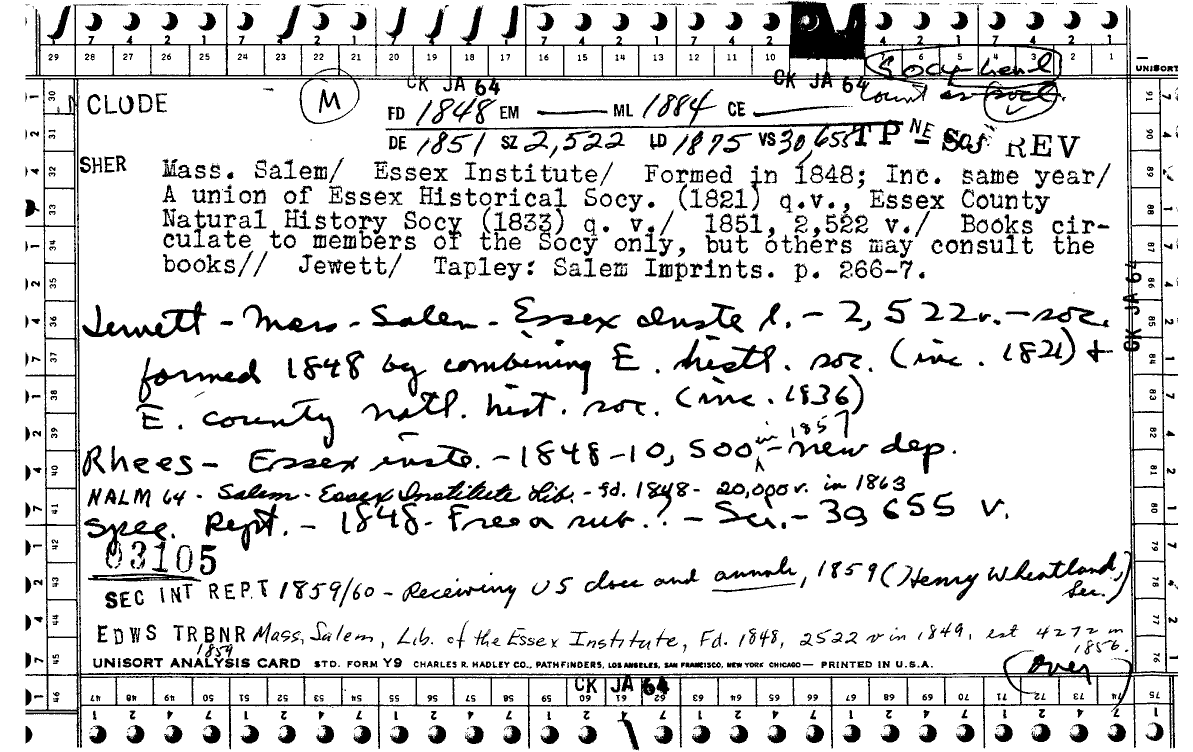 7 4 2 1 7 4 2 1 7 4 2 1 7 4 2 1 7 4 2 1 4 2 1
29 28 27 26 25 24 23 22 21 20 19 18 17 16 15 14 13 12 11 10 6 5 4 3 2 1
UNISORT
Socy-
CK JA 64 CK JA 64
count as socl.
CLUDE M FD 1848 EM — ML 1884 CE —
DE 1851 SZ 2,522 LD 1875 VS 30,655 TP - NE SOS REV
SHER Mass. Salem/ Essex Institute/ Formed in 1848; Inc. same year/
A union of Essex Historical Socy. (1821) q.v., Essex County
Natural History Socy (1833) q. v./ 1851, 2,522 v./ Books cir-
culate to members of the Socy only, but others may consult the
books// Jewett/ Tapley: Salem Imprints. p. 266-7.
CK JA 64
Jewett - Mass - Salem - Essex Inste l. - 2,522 v. - soc.
formed 1848 by combining E. histl. soc. (inc. 1821) +
E. county natl. hist. soc. (inc. 1836)
Rhees - Essex inste. - 1848 - 10,500 in 1857 - new dep.
NALM 64 - Salem - Essex Institute Lib. - fd. 1848 - 20,000 v. in 1863
Spec. Rept. - 1848 - Free or sub.? - Soc. - 30 655 v.
03105
SEC INT REPT 1859/60 - Receiving US docs and annals, 1859 (Henry Wheatland, Sec.)
EDWS TRBNR Mass, Salem, Lib. of the Essex Institute, Fd. 1848, 2522 v in 1849, est 4272 in 1856.
1859
UNISORT ANALYSIS CARD STD. FORM Y9 CHARLES R. HADLEY CO., PATHFINDERS, LOS ANGELES, SAN FRANCISCO, NEW YORK CHICAGO — PRINTED IN U.S.A.
(over)
CK JA 64
47 48 49 50 51 52 53 54 55 56 57 58 59 60 61 62 63 64 65 66 67 68 69 70 71 72 73 74 75